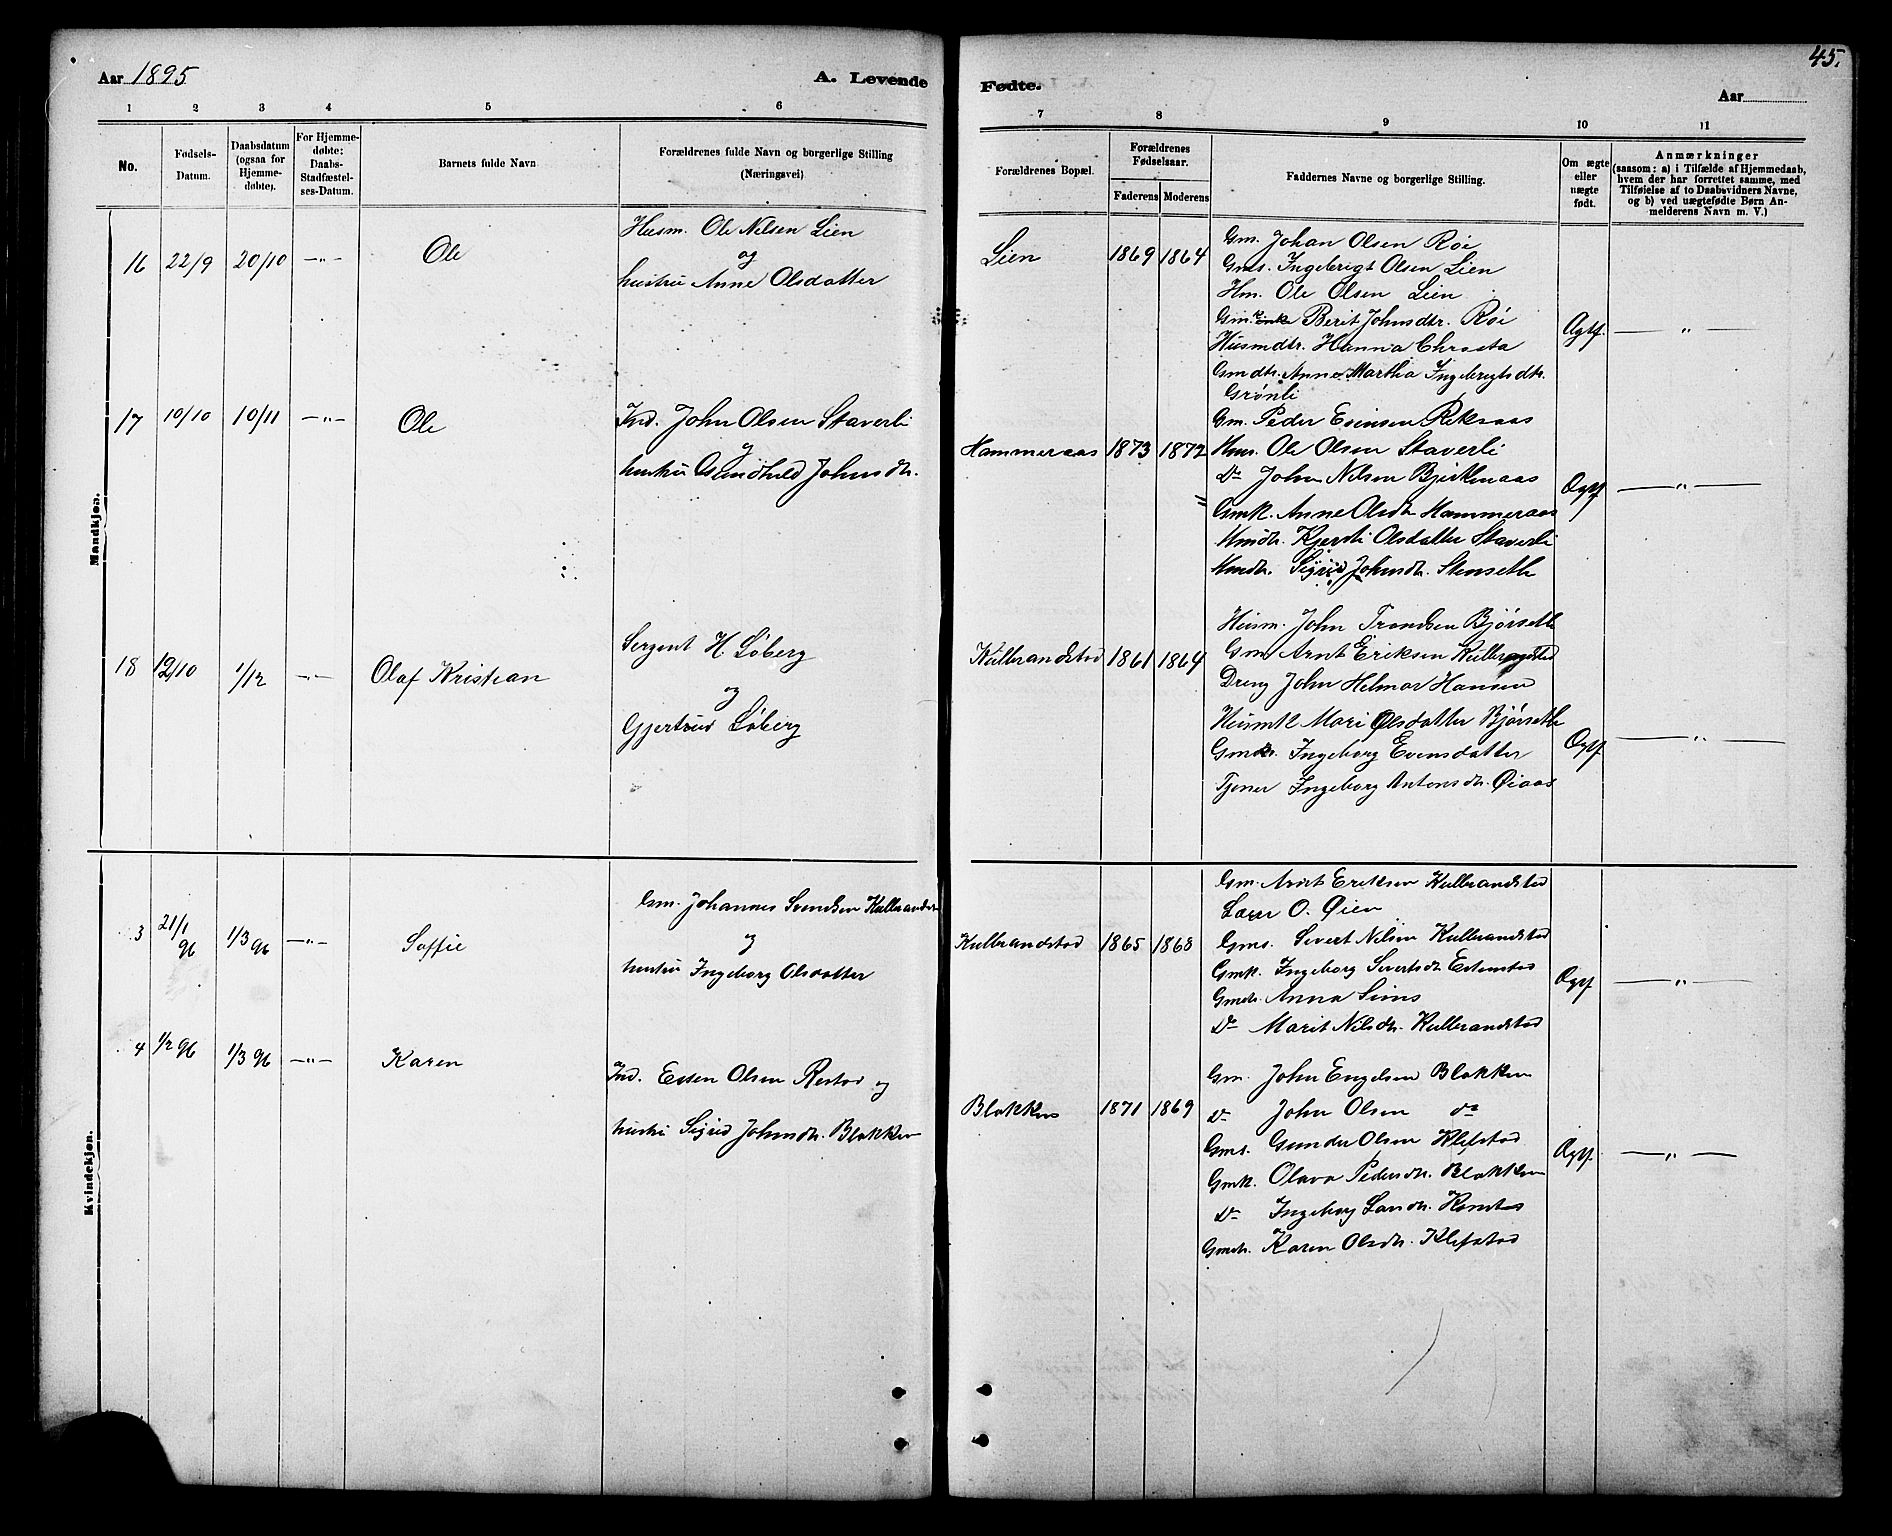 45.
Aar 1895
A. Levende
Fødte.
Aar
1 2 3 4 5 6 7 8 9 10 11
No.
Fødsels-Datum.
Daabsdatum (ogsaa for Hjemme-døbte).
For Hjemme-døbte; Daabs-Stadfæstel-ses-Datum.
Barnets fulde Navn
Forældrenes fulde Navn og borgerlige Stilling (Næringsvei)
Forældrenes Bopæl.
Forældrenes Fødselsaar.
Faderens Moderens
Faddernes Navne og borgerlige Stilling.
Om ægte eller uægte født.
Anmærkninger
(saasom: a) i Tilfælde af Hjemmedaab, hvem der har forrettet samme, med Tilføielse af to Daabsvidners Navne, og b) ved uægtefødte Børn An-melderens Navn m. V.)
Mandkjøn.
16 22/9 20/10 —"— Ole
Husm. Ole Nilsen Lien
og
hustru Anne Olsdatter
Lien 1869 1864
Gm. Johan Olsen Røi
Gms. Ingebrigt Olsen Lien
Hm. Ole Olsen Lien
Gmk. Berit Johnsdtr. Røi
Husmdtr. Hanna
Gmdtr. Anne Martha Ingebrigtsdtr.
Grønli
Ægtf. —"—
17 10/10 10/11 —"— Ole
Ind. John Olsen Staverli
og
hustru Gunhild Johnsdtr.
Hammeraas 1873 1872
Gm. Peder Estensen
Hms. Ole Olsen Staverli
Do John Nilsen Bjerkenaas
Gmk. Anne Olsdtr Hammeraas
Hmdtr. Kjersti Olsdatter Staverli
Hmdtr. Sigrid Johnsdtr. Stenseth
Ægtf. —"—
18 12/10 1/12 —"— Olaf Kristian
Sergent H. Løberg
og
Gjertrud Løberg
Kulbrandstad 1861 1864
Husm. John Trondsen Bjørseth
Gm. Arnt Eriksen Kulbrandstad
Dreng John Helmar Hansen
Husmk Mari Olsdatter Bjørseth
Gmdr. Ingeborg Evensdatter
Tjener Ingeborg Antonsdtr. Øiaas
Ægtf. —"—
Kvindekjøn.
3 21/1 96 1/3 96 —"— Soffie
Gm. Johannes Svendsen Kulbrandstd
og
hustru Ingeborg Olsdatter
Kulbrandstad 1865 1868
Gm. Arnt Eriksen Kulbrandstad
Lærer O. Øien
Gms. Sivert Nilsen Kulbrandstad
Gmk. Ingeborg Sivertsdtr Estenstad
Gmdtr. Anna Sims
Do Marit Nilsdtr. Kulbrandstad
Ægtf. —"—
4 1/2 96 1/3 96 —"— Karen
Ind. Esten Olsen Restad og
hustru Sigrid Johnsdtr. Blokken
Blokken 1871 1869
Gm. John Engelsen Blokken
Do John Olsen do
Gms. Gunder Olsen Klefstad
Gmk. Olava Pedersdtr. Blokken
Do Ingeborg Larsdtr.
Gmdtr. Karen Olsdtr. Klefstad
Ægtf. —"—